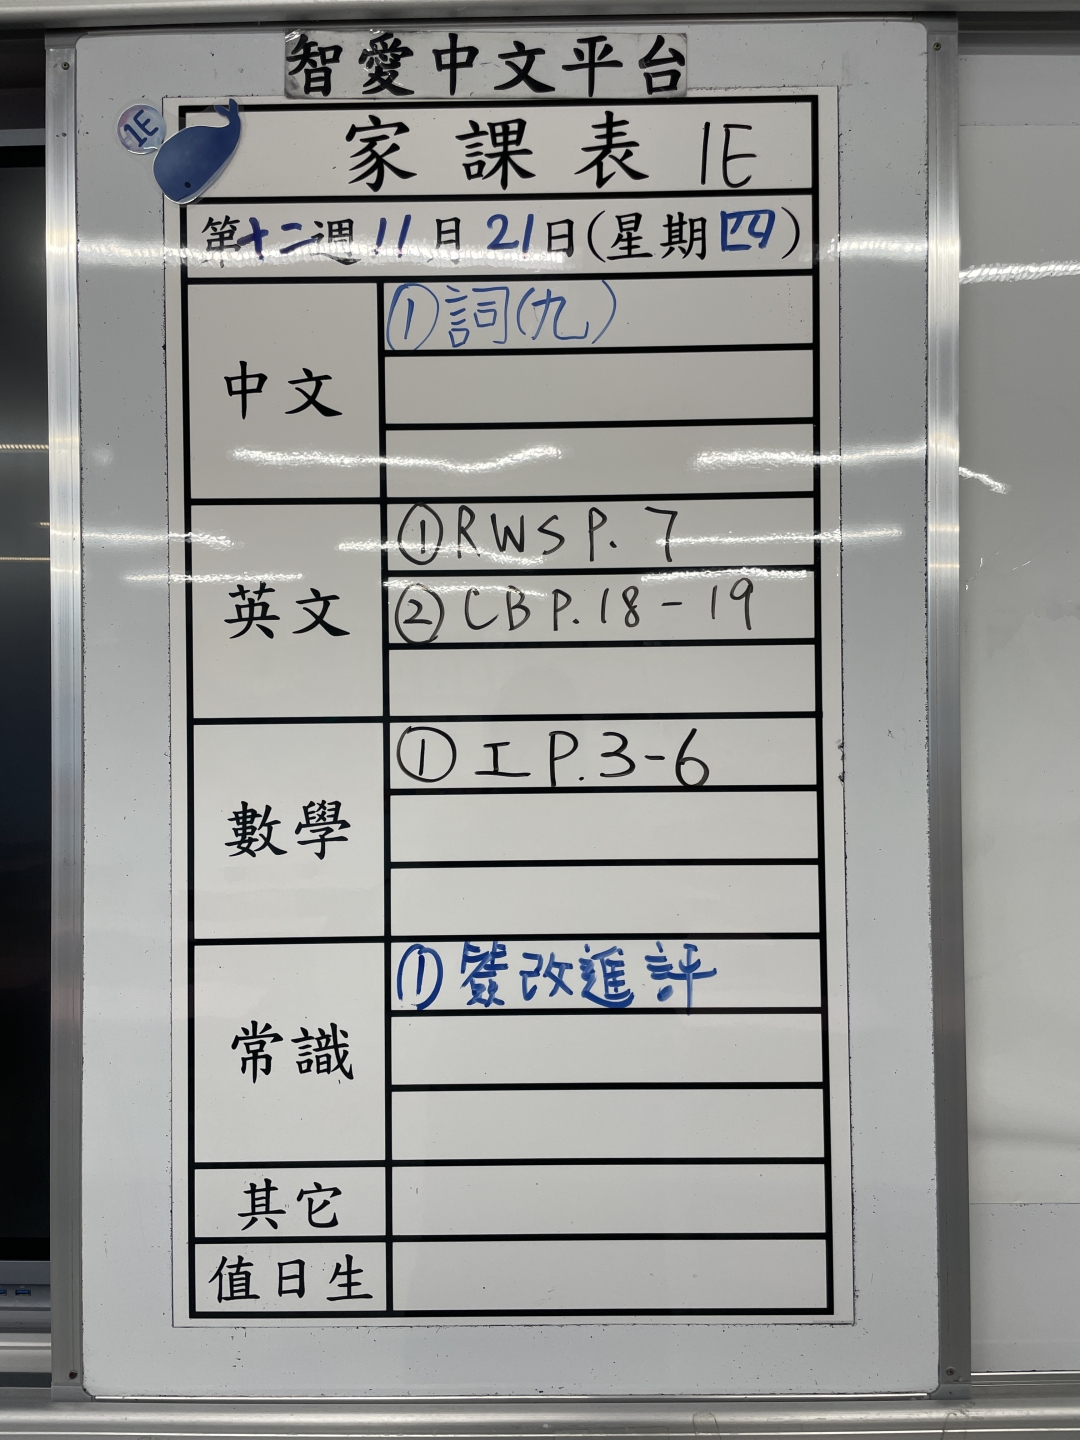 智愛中文平台
1E
家課表 1E
第十二週 11月21日(星期四)
中文
①詞(九)
英文
①RWS P. 7
②CB P.18-19
數學
①工 P.3-6
常識
①簽改進評
其它
值日生